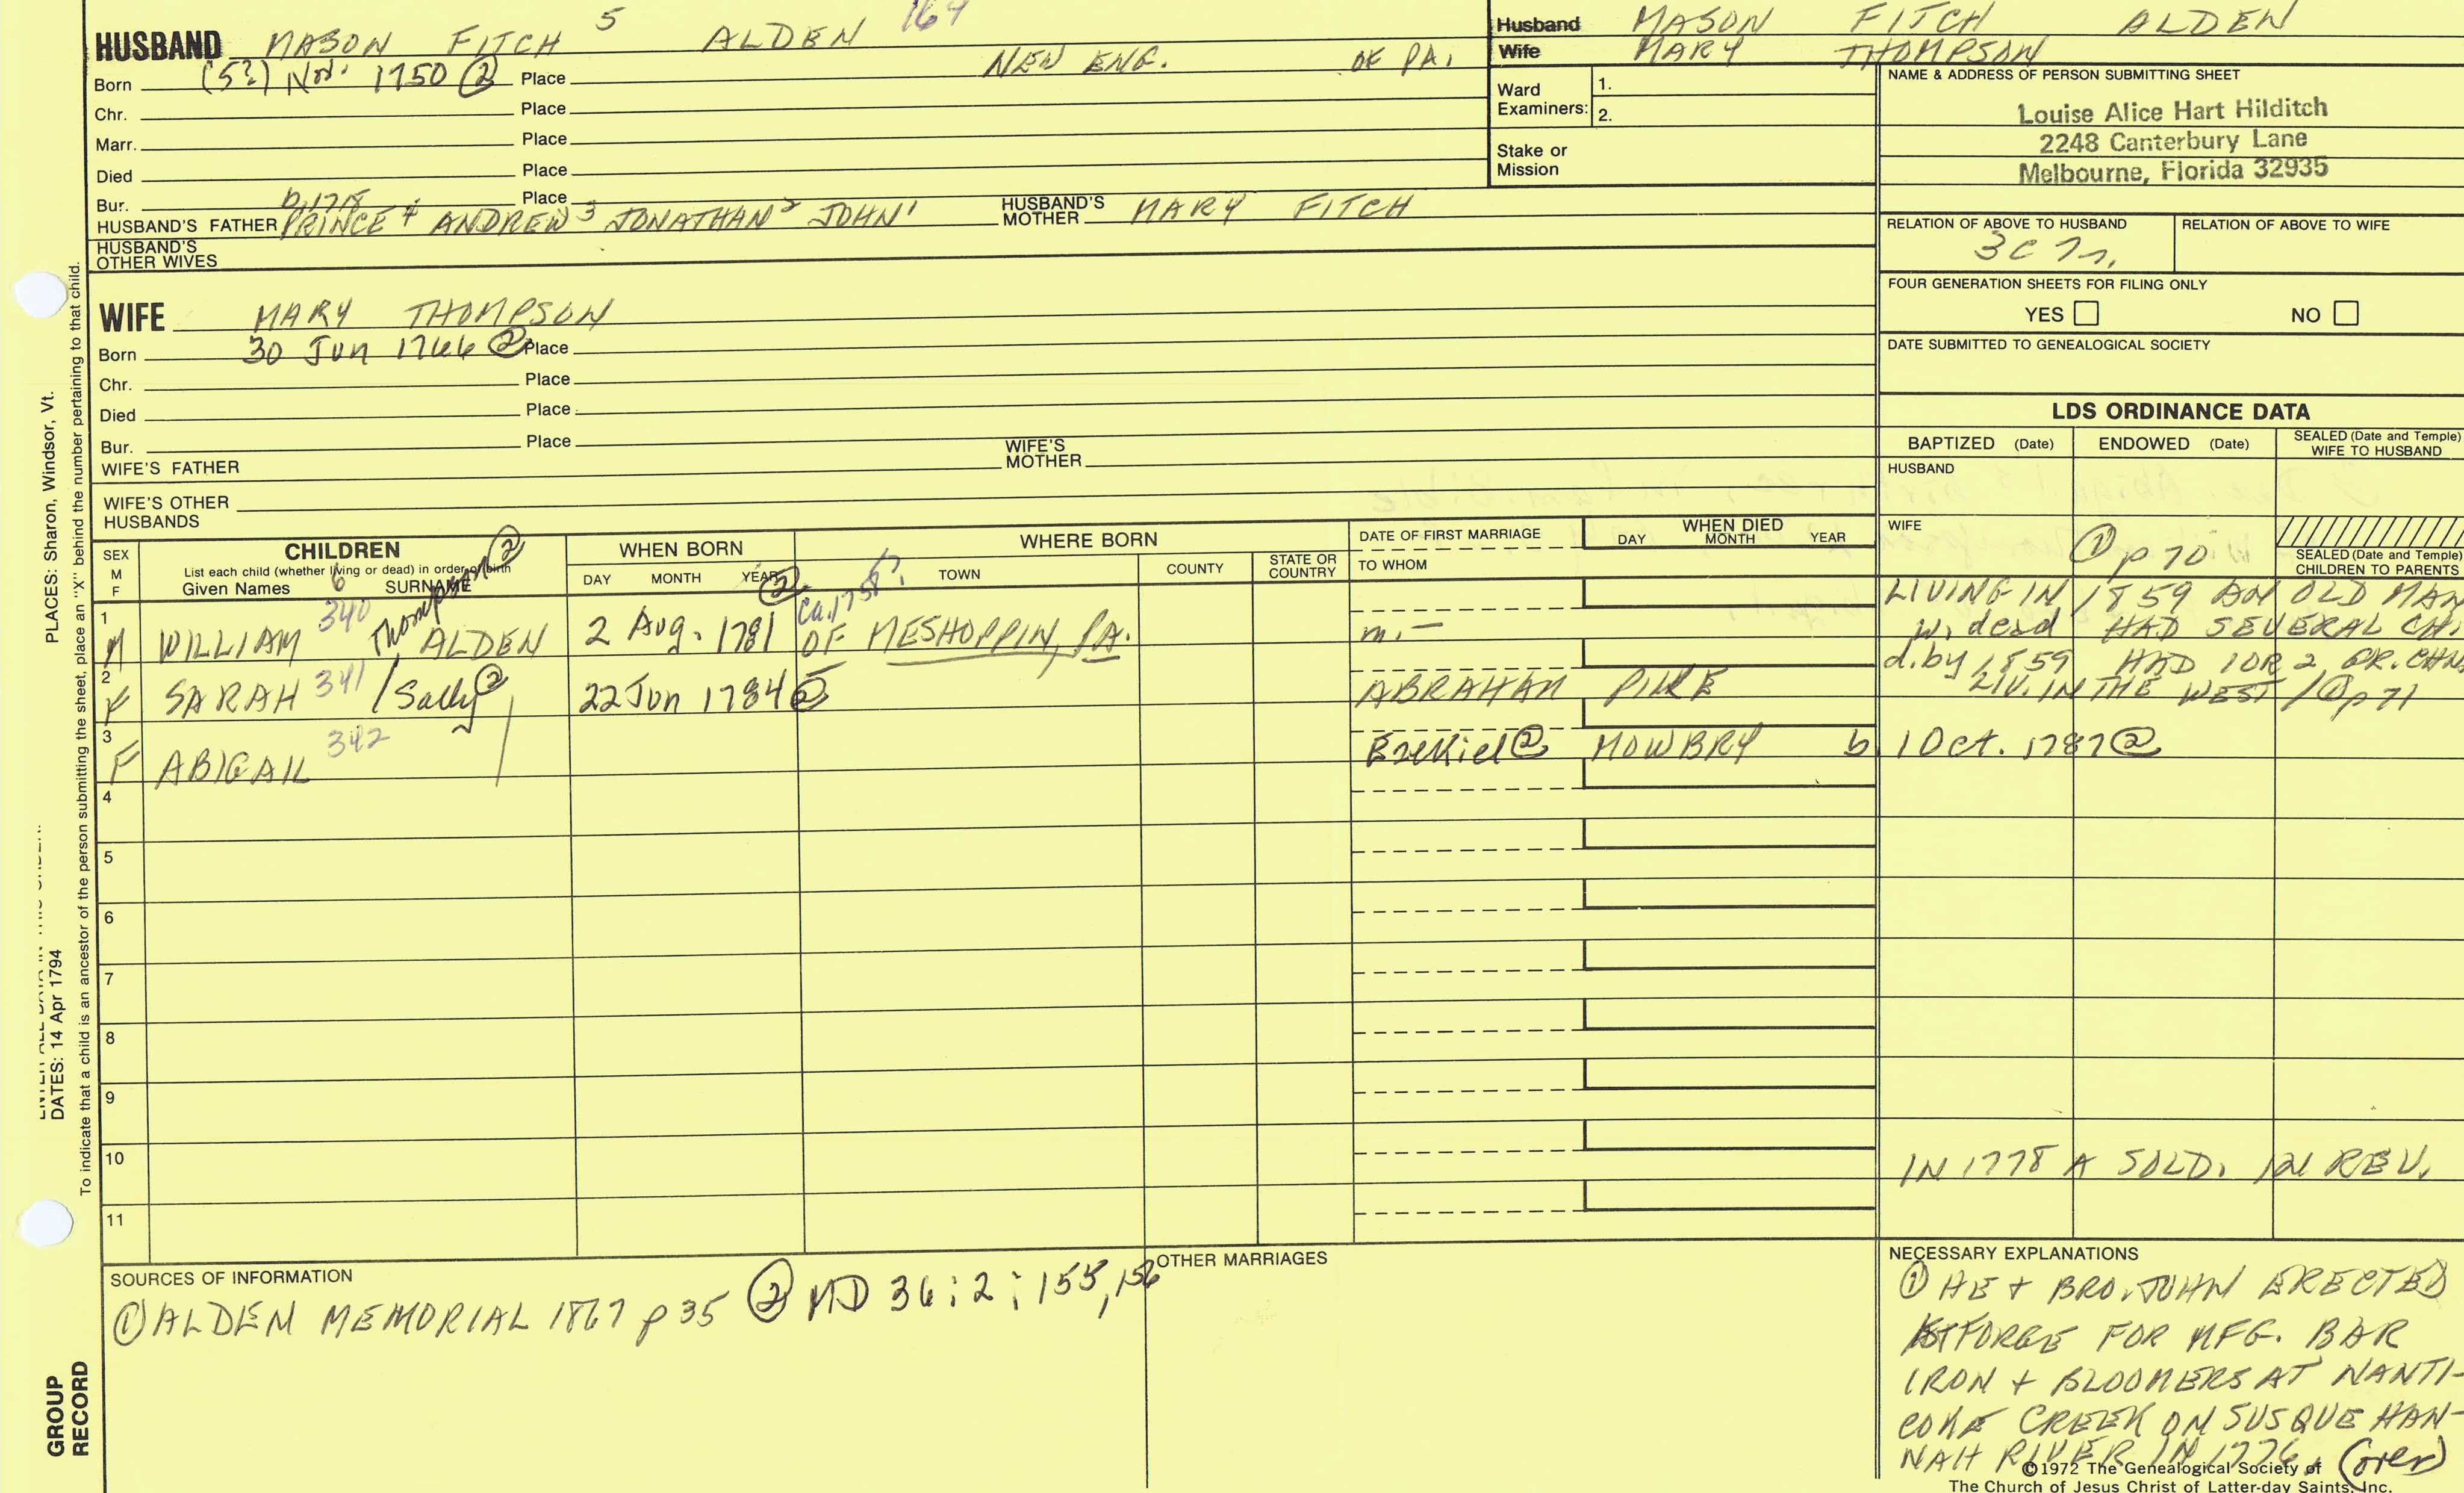 HUSBAND MASON FITCH 5 ALDEN 164
Born (5?) Nov. 1750 ② Place NEW ENG. OF PA.
Chr. Place
Marr. Place
Died Place
Bur. Place
HUSBAND'S FATHER PRINCE 4 ANDREW 3 JONATHAN 2 JOHN 1 HUSBAND'S MOTHER MARY FITCH
HUSBAND'S OTHER WIVES
WIFE MARY THOMPSON
Born 30 Jun 1766 ② Place
Chr. Place
Died Place
Bur. Place
WIFE'S FATHER WIFE'S MOTHER
WIFE'S OTHER HUSBANDS
Husband MASON FITCH ALDEN
Wife MARY THOMPSON
Ward Examiners: 1.
2.
Stake or Mission
NAME & ADDRESS OF PERSON SUBMITTING SHEET
Louise Alice Hart Hilditch
2248 Canterbury Lane
Melbourne, Florida 32935
RELATION OF ABOVE TO HUSBAND RELATION OF ABOVE TO WIFE
3C
FOUR GENERATION SHEETS FOR FILING ONLY
YES NO
DATE SUBMITTED TO GENEALOGICAL SOCIETY
LDS ORDINANCE DATA
BAPTIZED (Date) ENDOWED (Date) SEALED (Date and Temple) WIFE TO HUSBAND
HUSBAND
WIFE
① p 70
SEALED (Date and Temple) CHILDREN TO PARENTS
SEX M F
CHILDREN
List each child (whether living or dead) in order of birth
Given Names 6 SURNAME
WHEN BORN
DAY MONTH YEAR ②
WHERE BORN
TOWN COUNTY STATE OR COUNTRY
DATE OF FIRST MARRIAGE
TO WHOM
WHEN DIED
DAY MONTH YEAR
1 M WILLIAM 340 Thompson ② ALDEN 2 Aug. 1781 OF MESHOPPIN, PA. m. —
LIVING IN 1859 AN OLD MAN
W. dead HAD SEVERAL CH.
2 F SARAH 341 / Sally ② 22 Jun 1784 ② ABRAHAM PIKE
d. by 1859 HAD 1 OR 2 GR. CHN
LIV. IN THE WEST / ① p 71
3 F ABIGAIL 342 Ezekiel ② MOWBRY b. 1 Oct. 1787 ②
4
5
6
7
8
9
10 IN 1778 A SOLD. IN REV.
11
SOURCES OF INFORMATION
① ALDEN MEMORIAL 1867 p 35 ② MD 36:2:155,156
OTHER MARRIAGES
NECESSARY EXPLANATIONS
① HE + BRO. JOHN ERECTED
FORGE FOR MFG. BAR
IRON + BLOOMERS AT NANTI-
COKE CREEK ON SUSQUEHAN-
NAH RIVER IN 1776. (over)
©1972 The Genealogical Society of
The Church of Jesus Christ of Latter-day Saints, Inc.
PLACES: Sharon, Windsor, Vt.
DATES: 14 Apr 1794
To indicate that a child is an ancestor of the person submitting the sheet, place an "X" behind the number pertaining to that child.
GROUP
RECORD